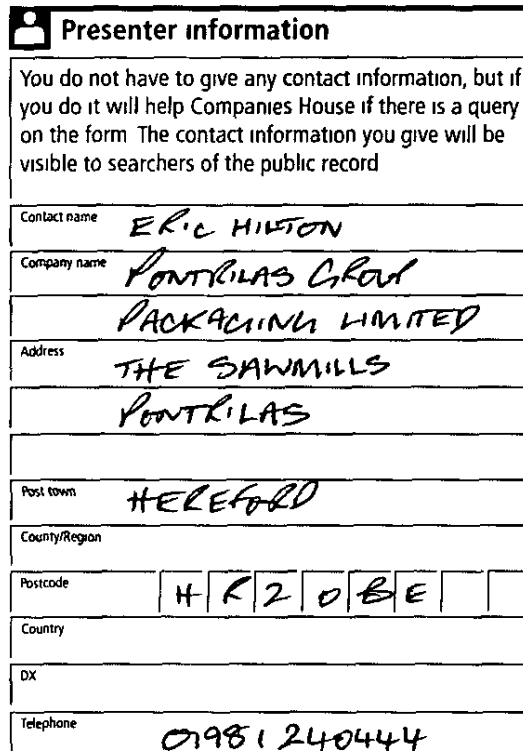 Presenter information
You do not have to give any contact information, but if
you do it will help Companies House if there is a query
on the form The contact information you give will be
visible to searchers of the public record
Contact name ERIC HILTON
Company name PONTRILAS GROUP
PACKAGING LIMITED
Address THE SAWMILLS
PONTRILAS
Post town HEREFORD
County/Region
Postcode HR2 0BE
Country
DX
Telephone 01981 240444